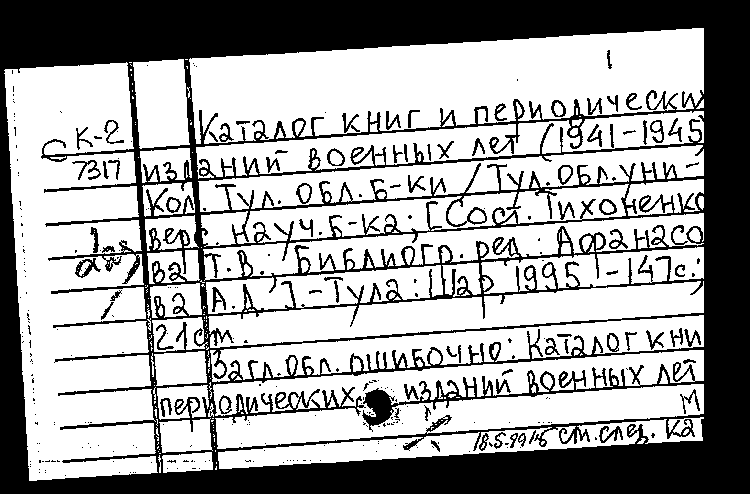 1
К-2 Каталог книг и периодических
С 7317 изданий военных лет (1941-1945)
Кол. Тул. обл. б-ки / Тул. обл. уни-
верс. науч. б-ка; [Сост. Тихоненко
ва Т.В.; Библиогр. ред.: Афанасо
ва А.Д.]. - Тула: Шар, 1995. - 147с.;
21см.
Загл. обл. ошибочно: Каталог кни
периодических изданий военных лет
М
18.5.99 см. след. ка